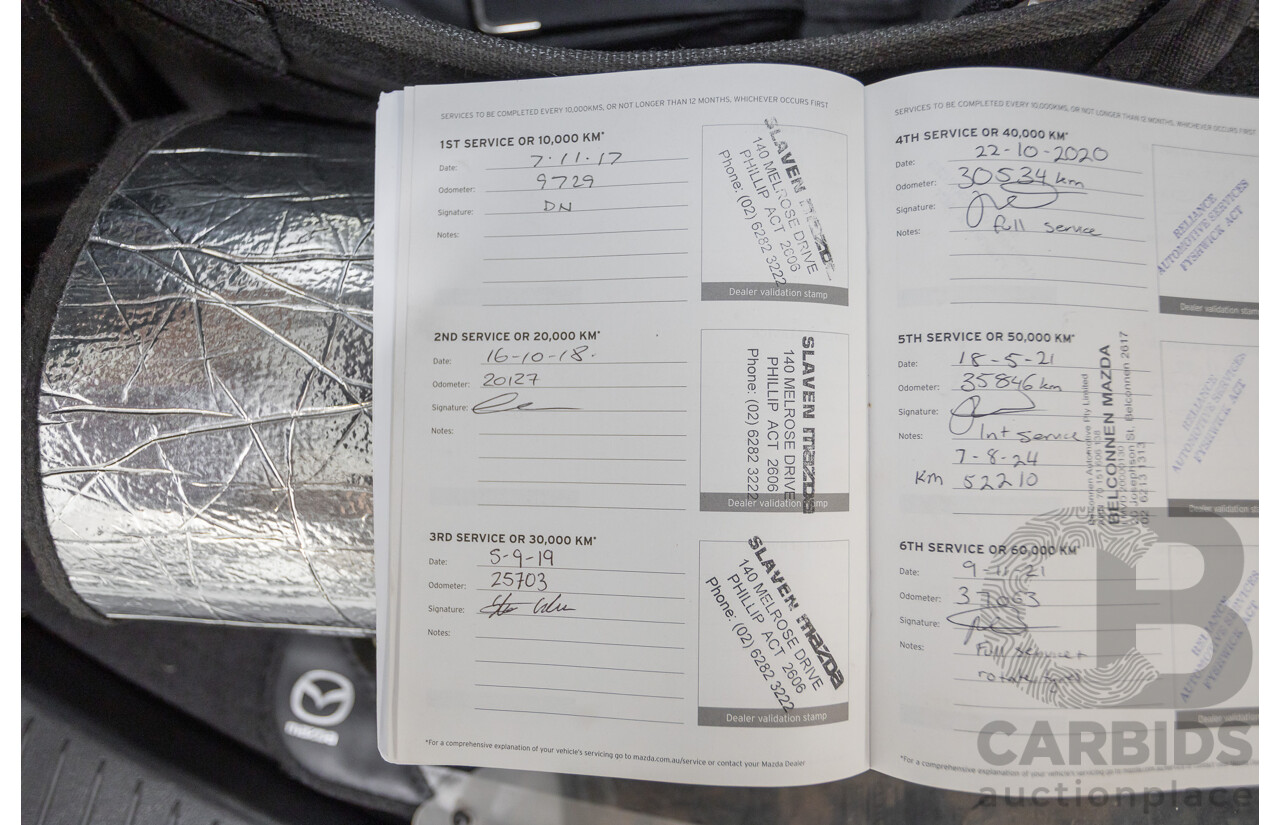 SERVICES TO BE COMPLETED EVERY 10,000KMS, OR NOT LONGER THAN 12 MONTHS, WHICHEVER OCCURS FIRST
1ST SERVICE OR 10,000 KM*
Date: 7.11.17
Odometer: 9729
Signature: DN
Notes:
SLAVEN mazda
140 MELROSE DRIVE
PHILLIP ACT 2606
Phone: (02) 6282 3222
Dealer validation stamp
2ND SERVICE OR 20,000 KM*
Date: 16-10-18.
Odometer: 20127
Signature:
Notes:
SLAVEN mazda
140 MELROSE DRIVE
PHILLIP ACT 2606
Phone: (02) 6282 3222
Dealer validation stamp
3RD SERVICE OR 30,000 KM*
Date: 5-9-19
Odometer: 25703
Signature:
Notes:
SLAVEN mazda
140 MELROSE DRIVE
PHILLIP ACT 2606
Phone: (02) 6282 3222
Dealer validation stamp
*For a comprehensive explanation of your vehicle's servicing go to mazda.com.au/service or contact your Mazda Dealer
SERVICES TO BE COMPLETED EVERY 10,000KMS, OR NOT LONGER THAN 12 MONTHS, WHICHEVER OCCURS FIRST
4TH SERVICE OR 40,000 KM*
Date: 22-10-2020
Odometer: 30534 km
Signature:
Notes: full service
RELIANCE
AUTOMOTIVE SERVICES
FYSHWICK ACT
Dealer validation stam
5TH SERVICE OR 50,000 KM*
Date: 18-5-21
Odometer: 35846 km
Signature:
Notes: Int service
7-8-24
Km 52210
Belconnen Automotive Pty Limited
BELCONNEN MAZDA
Josephson St, Belconnen 2617
02 6213 1313
RELIANCE
AUTOMOTIVE SERVICES
FYSHWICK ACT
Dealer validation stam
6TH SERVICE OR 60,000 KM*
Date: 9-11-21
Odometer:
Signature:
Notes: Full service +
rotate tyres
RELIANCE
AUTOMOTIVE SERVICES
FYSHWICK ACT
Dealer validation
*For a comprehensive explanation of your vehicle's servicing go to
mazda
CARBIDS
auctionplace